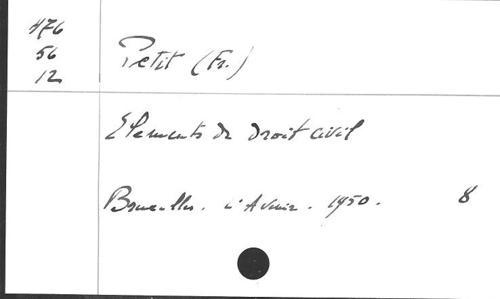 476
56
12
Petit (Fr.)
Elements de droit civil
Bruxelles. L'Avenir. 1950. 8